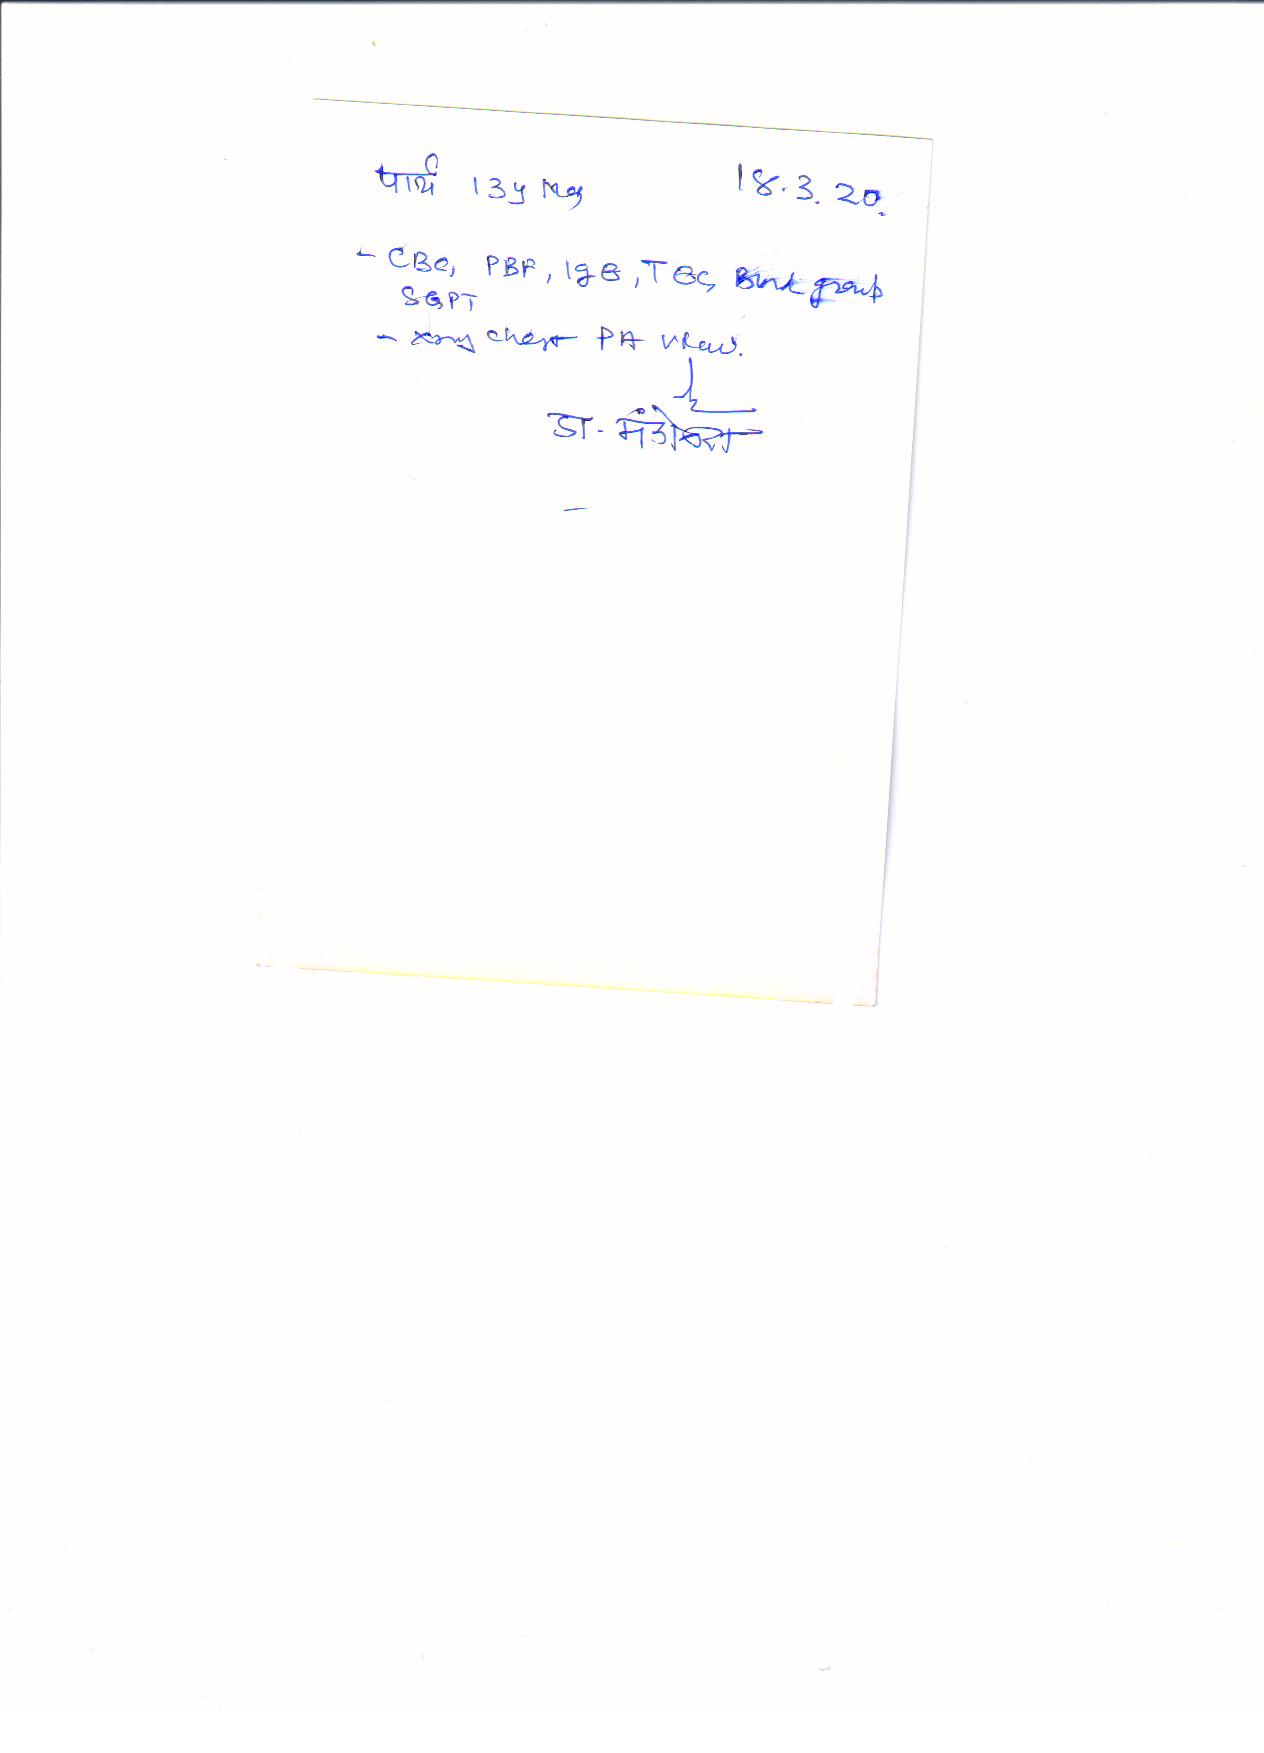 पार्थ 13y Male 18.3.20.
- CBC, PBF, IgE, TEC, Blood group
SGPT
- Xray Chest PA view.
डा-